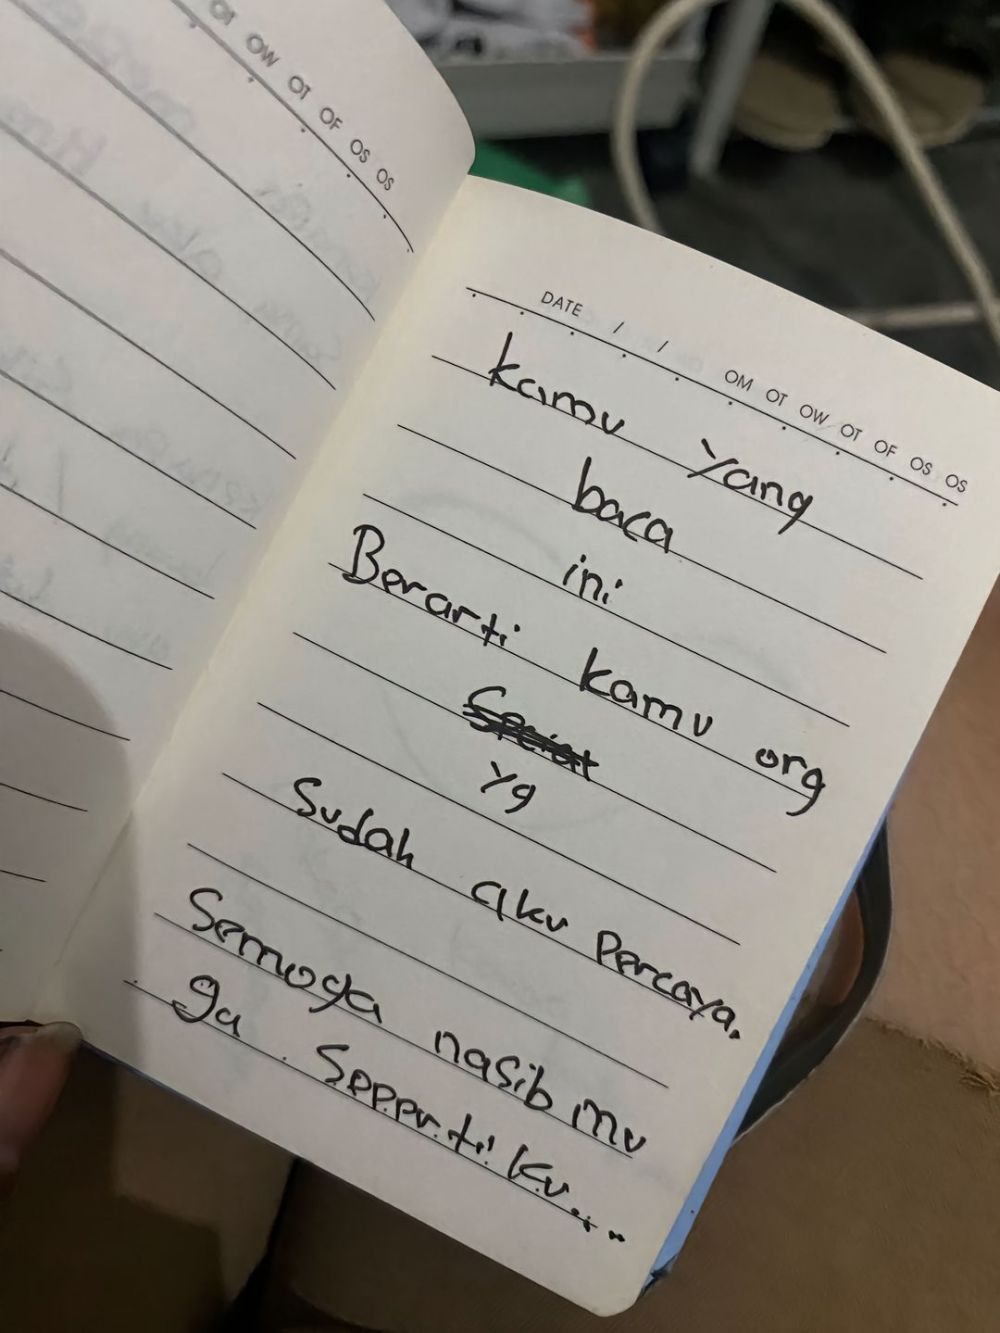 OT OW OT OF OS OS
DATE / / OM OT OW OT OF OS OS
kamu Yang
baca
ini
Berarti kamu org
Yg
Sudah aku Percaya.
Semoga nasib mu
ga Seperti Ku...